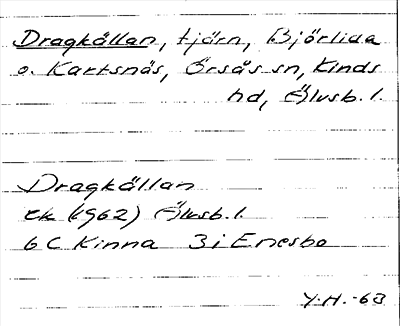 Dragkällan, tjärn, Björlida
o. Kartsnäs, Örsås sn, Kinds
hd, Älvsb. l.
Dragkällan
ek (1962) Älvsb. l.
6 C Kinna 3 i Enesbo
Y. H. -63